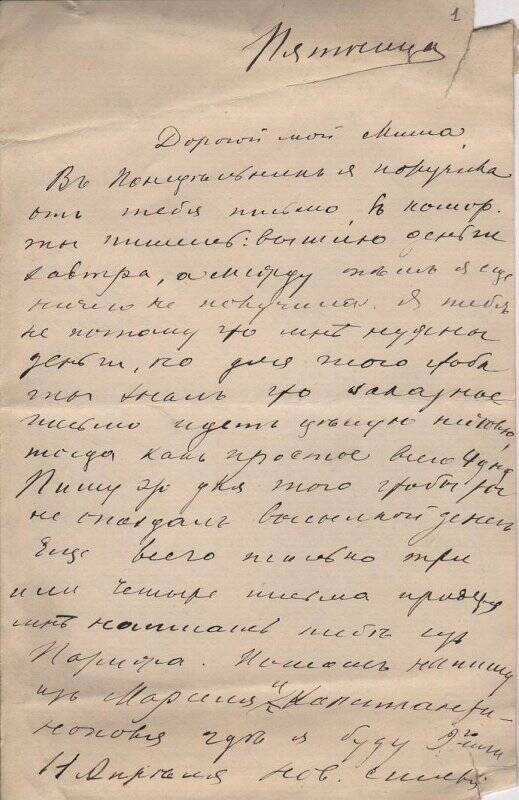 1
Пятница
Дорогой мой Миша,
Въ Понедѣльникъ я получила
отъ тебя письмо, въ котор.
ты пишешь: вышлю деньги
завтра, а между тѣмъ я еще
ничего не получила. Я
не потому что мнѣ нужны
деньги, но для того чтобъ
ты зналъ что заказное
письмо идетъ цѣлую
тогда какъ простое всего 4 дня
Пишу это для того чтобы ты
не опоздалъ высылкой денегъ
Еще всего только три
или четыре письма
мнѣ написать тебѣ изъ
Потомъ напишу
изъ Марселя
гдѣ я буду 9го или
11 Апрѣля нов. стиля